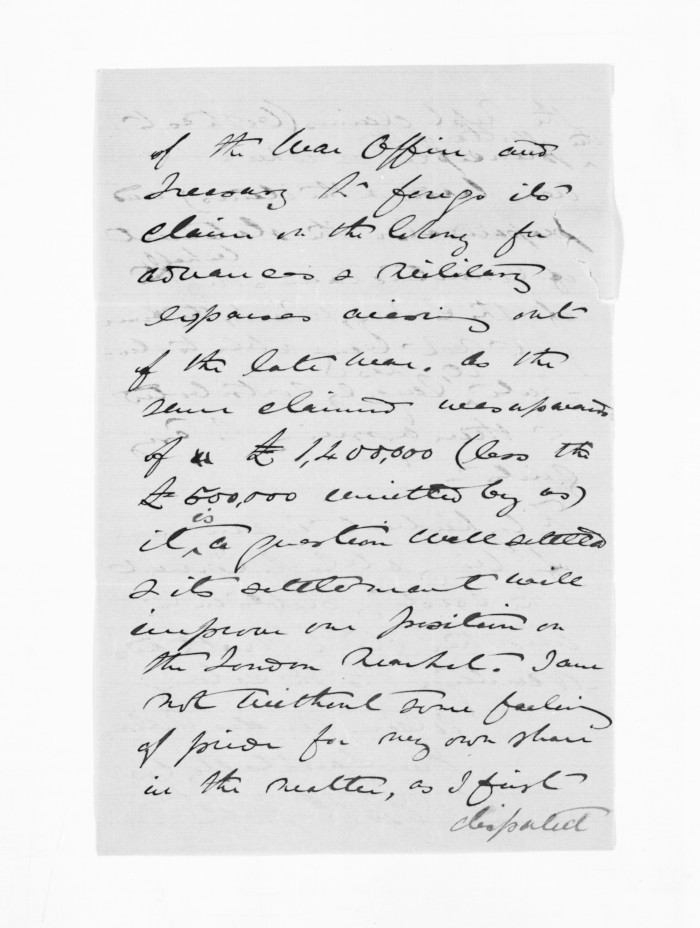 of the War Office and
Treasury to forego its
claim on the Colony for
advances & military
expenses arising out
of the late war. As the
sum claimed was upwards
of £1,400,000 (less the
£500,000 remitted by us)
it is a question well settled
& its settlement will
improve our position on
the London Market. I am
not without some feeling
of pride for my own share
in the matter, as I first
disputed